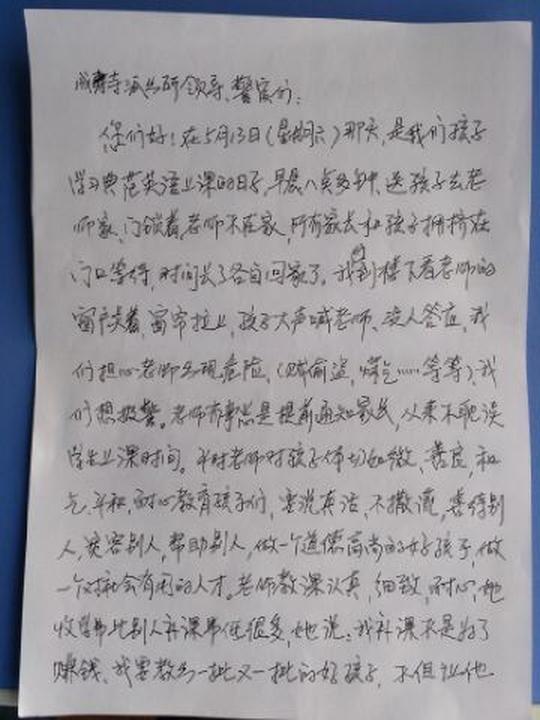 成寿寺派出所领导、警官们:
您们好!在5月13日(星期六)那天,是我们孩子
学习典范英语上课的日子,早晨八点多钟,送孩子去老
师家,门锁着,老师不在家,所有家长和孩子拥挤在
门口等待,时间长了各自回家了。我们到楼下看老师的
窗户关着,窗帘拉上,孩子大声喊老师、没人答应,我
们担心老师出现危险,(贼偷盗,煤气……等等)、我
们想报警。老师有事总是提前通知家长,从来不耽误
学生上课时间。平时老师对孩子体切细微,善良,和
气,平和,耐心教育孩子们,要说真话,不撒谎,善待别
人,宽容别人,帮助别人,做一个道德高尚的好孩子,做
一个对社会有用的人才。老师教课认真,细致,耐心,她
收学费比别人补课费低很多,她说:我补课不是为了
赚钱、我要教出一批又一批的好孩子,不但让他